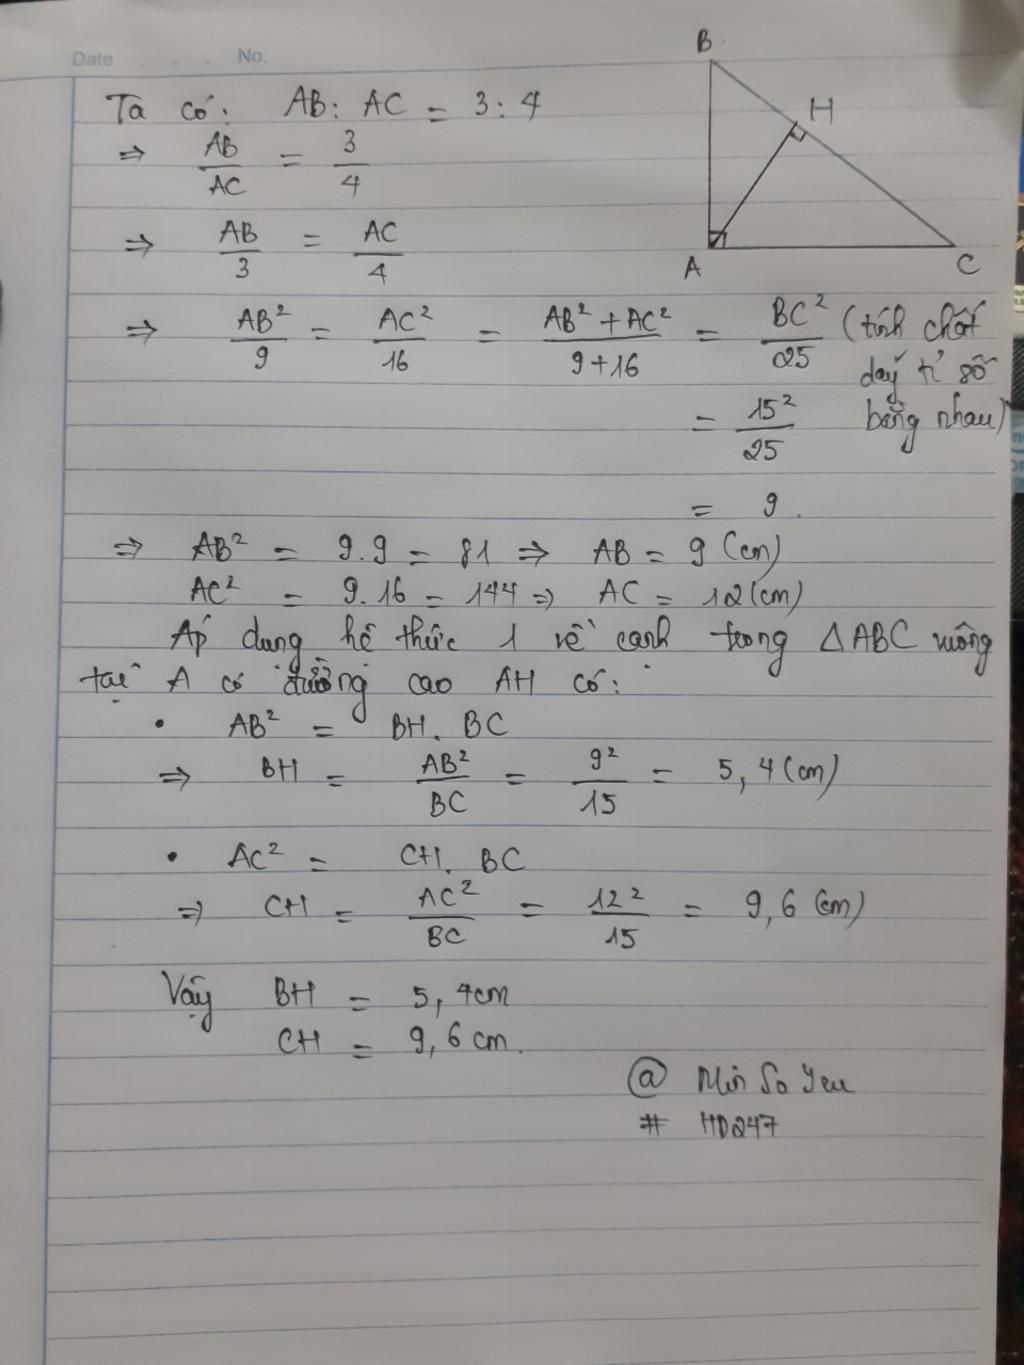 Date . . . No.
Ta có: AB : AC = 3 : 4
⇒ AB/AC = 3/4
⇒ AB/3 = AC/4
⇒ AB²/9 = AC²/16 = (AB² + AC²)/(9+16) = BC²/25 (tính chất dãy tỉ số bằng nhau)
= 15²/25
= 9.
⇒ AB² = 9.9 = 81 ⇒ AB = 9 (cm)
AC² = 9.16 = 144 ⇒ AC = 12 (cm)
Áp dụng hệ thức 1 về cạnh trong △ABC vuông
tại A có đường cao AH có:
• AB² = BH. BC
⇒ BH = AB²/BC = 9²/15 = 5,4 (cm)
• AC² = CH. BC
⇒ CH = AC²/BC = 12²/15 = 9,6 (cm)
Vậy BH = 5,4cm
CH = 9,6 cm.
@ Min So Yeu
# HD247
B
H
A
C